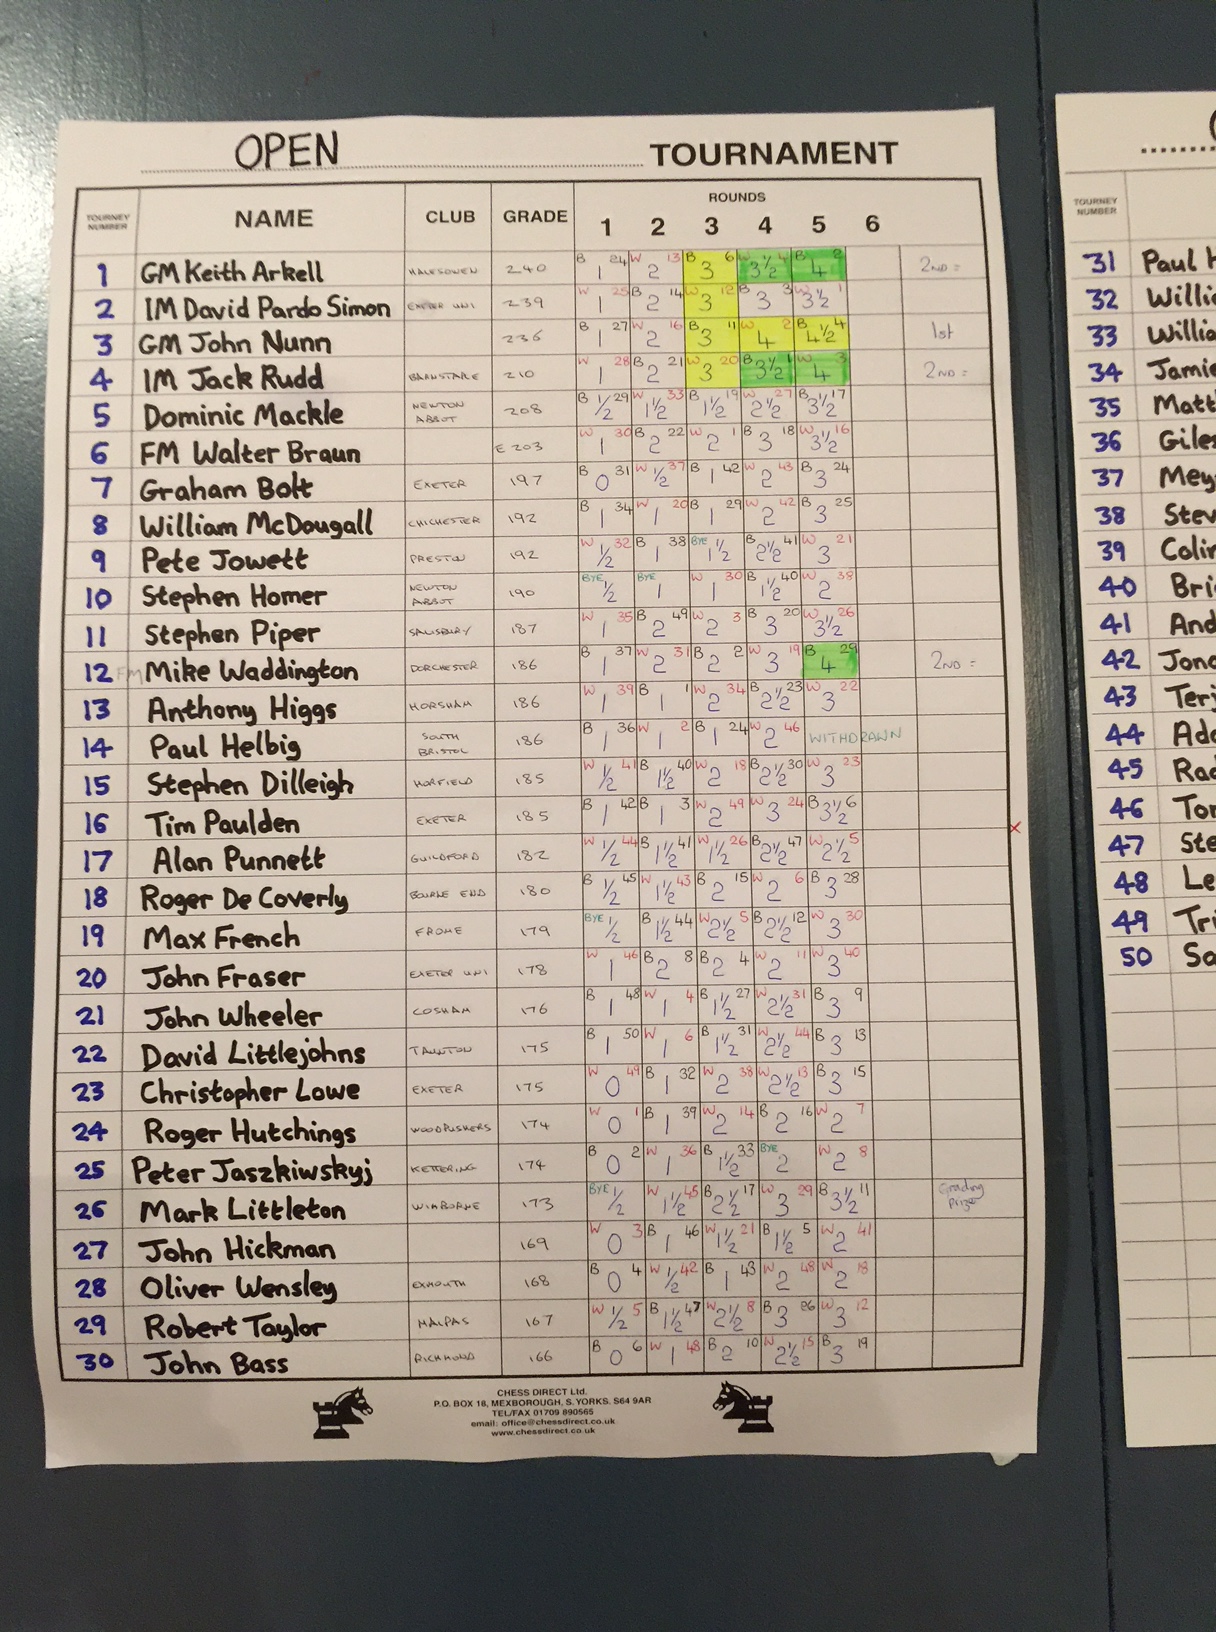 OPEN TOURNAMENT
TOURNEY NUMBER NAME CLUB GRADE ROUNDS 1 2 3 4 5 6
1 GM Keith Arkell HALESOWEN 240 B 1 24 W 2 13 B 3 6 W 3½ 4 B 4 2 2ND =
2 IM David Pardo Simon EXETER UNI 239 W 1 25 B 2 14 W 3 12 B 3 3 W 3½ 1
3 GM John Nunn 236 B 1 27 W 2 16 B 3 11 W 4 2 B 4½ 4 1st
4 IM Jack Rudd BARNSTAPLE 210 W 1 28 B 2 21 W 3 20 B 3½ 1 W 4 3 2ND =
5 Dominic Mackle NEWTON ABBOT 208 B ½ 29 W 1½ 33 B 1½ 19 W 2½ 27 B 3½ 17
6 FM Walter Braun E 203 W 1 30 B 2 22 W 2 1 B 3 18 W 3½ 16
7 Graham Bolt EXETER 197 B 0 31 W ½ 37 B 1 42 W 2 43 B 3 24
8 William McDougall CHICHESTER 192 B 1 34 W 1 20 B 1 29 W 2 42 B 3 25
9 Pete Jowett PRESTON 192 W ½ 32 B 1 38 BYE 1½ B 2½ 41 W 3 21
10 Stephen Homer NEWTON ABBOT 190 BYE ½ BYE 1 W 1 30 B 1½ 40 W 2 38
11 Stephen Piper SALISBURY 187 W 1 35 B 2 49 W 2 3 B 3 20 W 3½ 26
12 FM Mike Waddington DORCHESTER 186 B 1 37 W 2 31 B 2 2 W 3 19 B 4 29 2ND =
13 Anthony Higgs HORSHAM 186 W 1 39 B 1 1 W 2 34 B 2½ 23 W 3 22
14 Paul Helbig SOUTH BRISTOL 186 B 1 36 W 1 2 B 1 24 W 2 46 WITHDRAWN
15 Stephen Dilleigh HORFIELD 185 W ½ 41 B 1½ 40 W 2 18 B 2½ 30 W 3 23
16 Tim Paulden EXETER 185 B 1 42 B 1 3 W 2 49 W 3 24 B 3½ 6
17 Alan Punnett GUILDFORD 182 W ½ 44 B 1½ 41 W 1½ 26 B 2½ 47 W 2½ 5
18 Roger De Coverly BOURNE END 180 B ½ 45 W 1½ 43 B 2 15 W 2 6 B 3 28
19 Max French FROME 179 BYE ½ B 1½ 44 W 2½ 5 B 2½ 12 W 3 30
20 John Fraser EXETER UNI 178 W 1 46 B 2 8 B 2 4 W 2 11 W 3 40
21 John Wheeler COSHAM 176 B 1 48 W 1 4 B 1½ 27 W 2½ 31 B 3 9
22 David Littlejohns TAUNTON 175 B 1 50 W 1 6 B 1½ 31 W 2½ 44 B 3 13
23 Christopher Lowe EXETER 175 W 0 49 B 1 32 W 2 38 W 2½ 13 B 3 15
24 Roger Hutchings WOODPUSHERS 174 W 0 1 B 1 39 W 2 14 B 2 16 W 2 7
25 Peter Jaszkiwskyj KETTERING 174 B 0 2 W 1 36 B 1½ 33 BYE 2 W 2 8
26 Mark Littleton WIMBORNE 173 BYE ½ W 1½ 45 B 2½ 17 W 3 29 B 3½ 11 Grading prize
27 John Hickman 169 W 0 3 B 1 46 W 1½ 21 B 1½ 5 W 2 41
28 Oliver Wensley EXMOUTH 168 B 0 4 W ½ 42 B 1 43 W 2 48 W 2 18
29 Robert Taylor MALPAS 167 W ½ 5 B 1½ 47 W 2½ 8 B 3 26 W 3 12
30 John Bass RICHMOND 166 B 0 6 W 1 48 B 2 10 W 2½ 15 B 3 19
CHESS DIRECT Ltd.
P.O. BOX 18, MEXBOROUGH, S.YORKS. S64 9AR
TEL/FAX 01709 890565
email: office@chessdirect.co.uk
www.chessdirect.co.uk
TOURNEY NUMBER
31 Paul
32 Willi
33 Willia
34 Jamie
35 Matt
36 Giles
37 Mey
38 Stev
39 Colin
40 Bri
41 And
42 Jono
43 Ter
44 Ado
45 Rad
46 Tor
47 Ste
48 Le
49 Tri
50 Sa